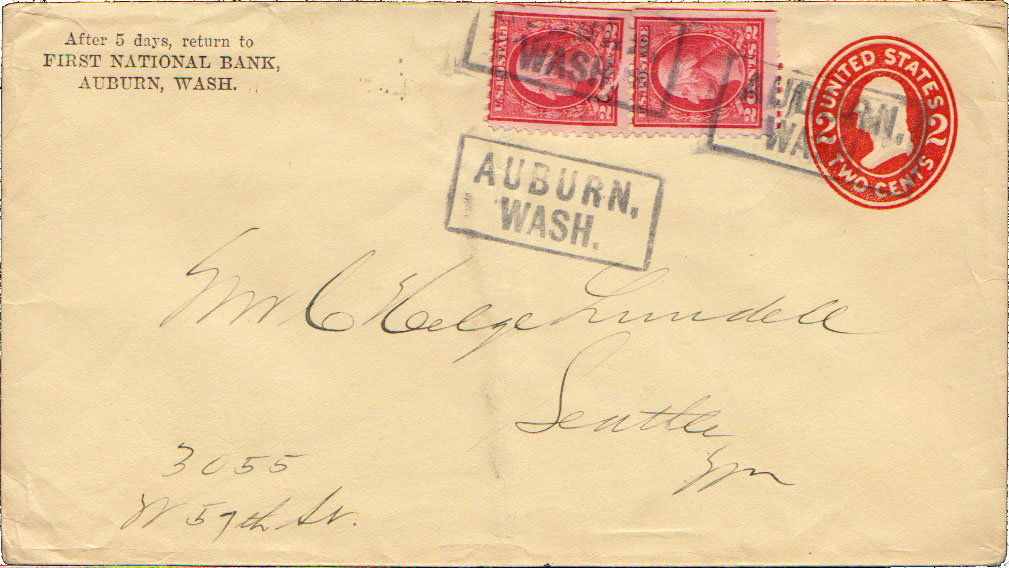 After 5 days, return to
FIRST NATIONAL BANK,
AUBURN, WASH.
U.S. POSTAGE
2 CENTS 2
U.S. POSTAGE
2 CENTS 2
WASH.
AUBURN,
WASH.
UNITED STATES
2 2
TWO CENTS
AUBURN,
WASH.
Mr C Helge Lundell
Seattle
Wn
3055
W 59th St.